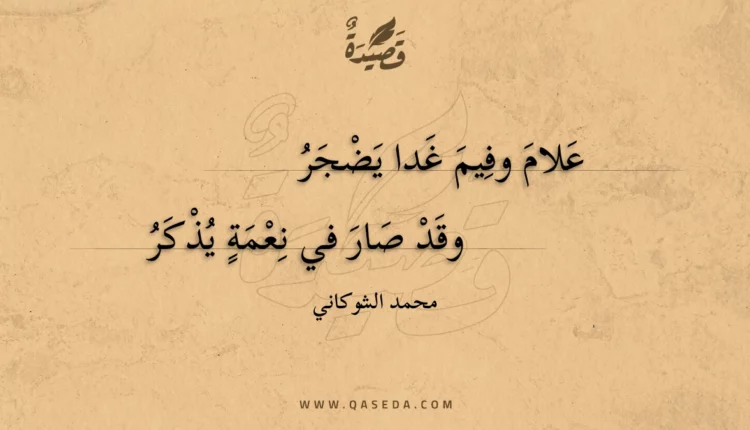 قَصِيدَةٌ
عَلامَ وفِيمَ غَدا يَضْجَرُ
وقَدْ صَارَ في نِعْمَةٍ يُذْكَرُ
محمد الشوكاني
WWW.QASEDA.COM